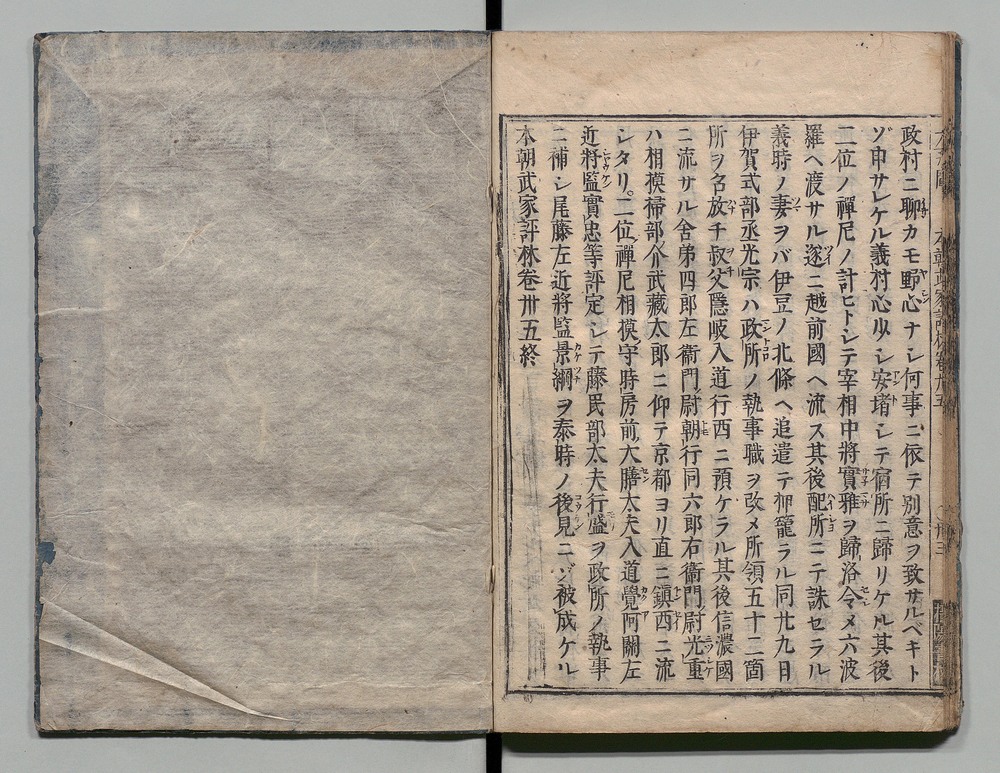 政村ニ聊カモ野心ナシ何事ニ依テ別意ヲ致サルベキト
ゾ申サレケル義村心少シ安堵シテ宿所ニ歸リケル其後
二位ノ禪尼ノ計ヒトシテ宰相中將實雅ヲ歸洛令メ六波
羅ヘ渡サル遂ニ越前國ヘ流ス其後配所ニテ誅セラル
義時ノ妻ヲバ伊豆ノ北條ヘ追遣テ押籠ラル同廿九日
伊賀式部丞光宗ハ政所ノ執事職ヲ改メ所領五十二箇
所ヲ召放チ叔父隱岐入道行西ニ預ケラル其後信濃國
ニ流サル舍弟四郎左衞門尉朝行同六郎右衞門尉光重
ハ相模掃部介武藏太郎ニ仰テ京都ヨリ直ニ鎭西ニ流
シタリ。二位禪尼相模守時房前大膳太夫入道覺阿關左
近將監實忠等評定シテ藤民部太夫行盛ヲ政所ノ執事
ニ補シ尾藤左近將監景綱ヲ泰時ノ後見ニゾ被成ケル
本朝武家評林卷卅五終